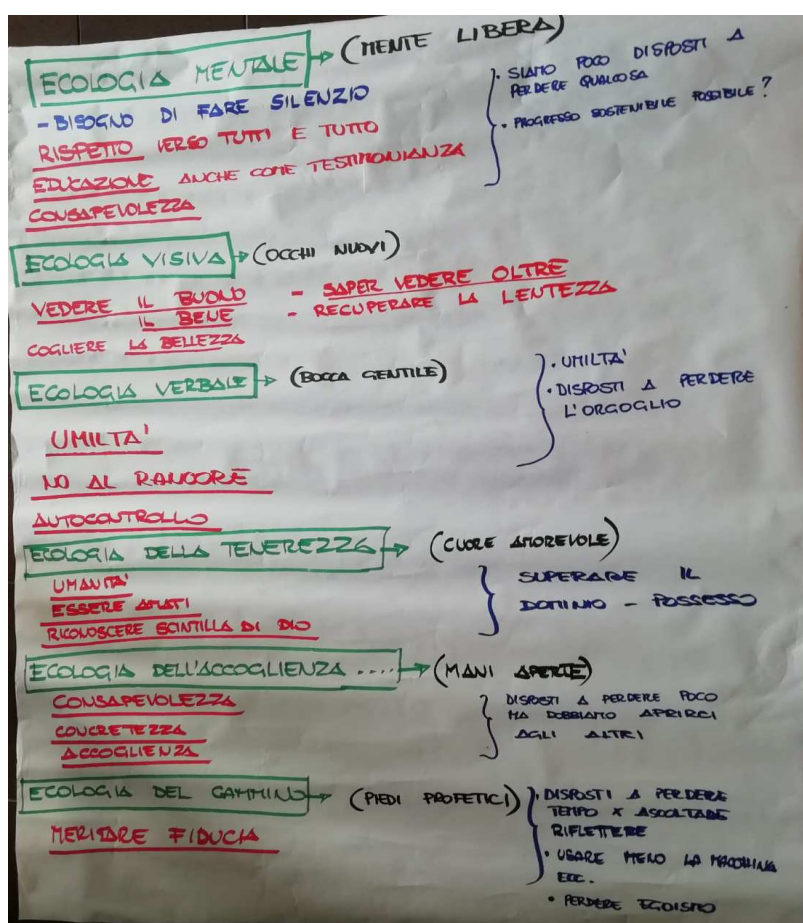 ECOLOGIA MENTALE → (MENTE LIBERA)
- BISOGNO DI FARE SILENZIO
RISPETTO VERSO TUTTI E TUTTO
EDUCAZIONE ANCHE COME TESTIMONIANZA
CONSAPEVOLEZZA
· SIAMO POCO DISPOSTI A
PERDERE QUALCOSA
· PROGRESSO SOSTENIBILE POSSIBILE?
ECOLOGIA VISIVA → (OCCHI NUOVI)
VEDERE IL BUONO
IL BENE
COGLIERE LA BELLEZZA
- SAPER VEDERE OLTRE
- RECUPERARE LA LENTEZZA
ECOLOGIA VERBALE → (BOCCA GENTILE)
UMILTA'
NO AL RANCORE
AUTOCONTROLLO
· UMILTA'
· DISPOSTI A PERDERE
L'ORGOGLIO
ECOLOGIA DELLA TENEREZZA → (CUORE AMOREVOLE)
UMANITA'
ESSERE AMATI
RICONOSCERE SCINTILLA DI DIO
SUPERARE IL
DOMINIO - POSSESSO
ECOLOGIA DELL'ACCOGLIENZA .... → (MANI APERTE)
CONSAPEVOLEZZA
CONCRETEZZA
ACCOGLIENZA
DISPOSTI A PERDERE POCO
MA DOBBIAMO APRIRCI
AGLI ALTRI
ECOLOGIA DEL CAMMINO → (PIEDI PROFETICI)
MERITARE FIDUCIA
· DISPOSTI A PERDERE
TEMPO X ASCOLTARE
RIFLETTERE
· USARE MENO LA MACCHINA
ECC.
· PERDERE EGOISMO